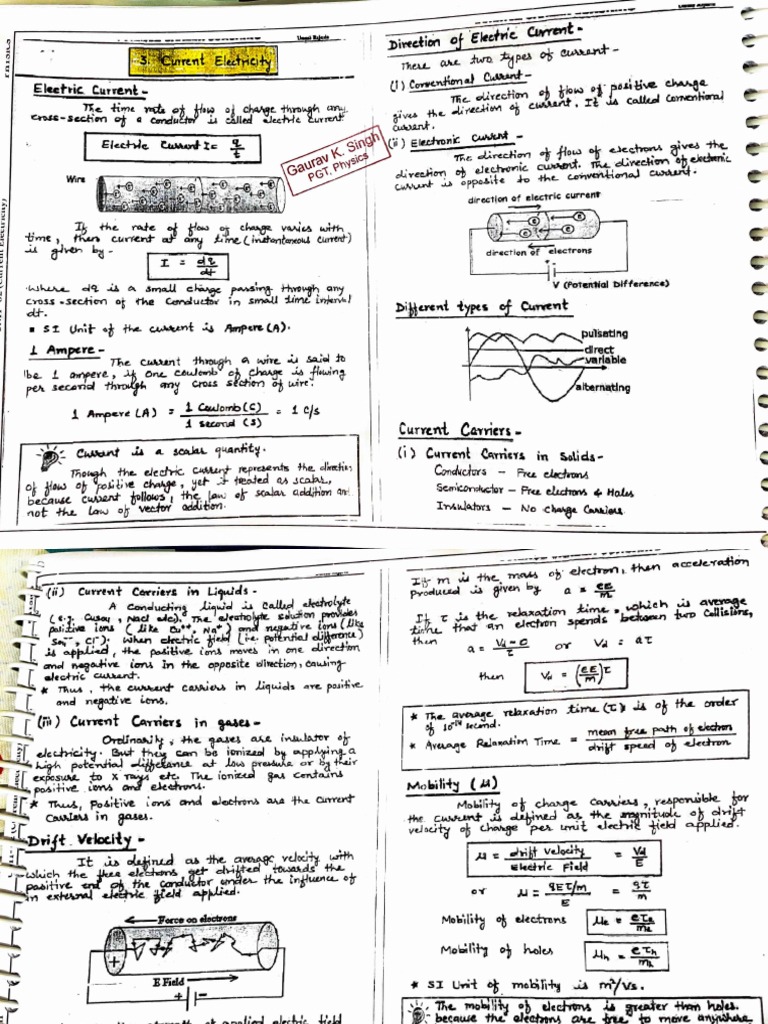 3. Current Electricity
Electric Current -
The time rate of flow of charge through any
cross-section of a conductor is called electric current
Electric Current I = q/t
Gaurav K. Singh
PGT, Physics
Wire
If the rate of flow of charge varies with
time, then current at any time (instantaneous current)
is given by -
I = dq/dt
Where dq is a small charge passing through any
cross-section of the conductor in small time interval
dt.
▪ SI Unit of the current is Ampere (A).
1 Ampere -
The current through a wire is said to
be 1 ampere, if one coulomb of charge is flowing
per second through any cross section of wire.
1 Ampere (A) = 1 Coulomb (C)/1 second (s) = 1 C/s
Current is a scalar quantity.
Though the electric current represents the direction
of flow of positive charge, yet it treated as scalar,
because current follows, the law of scalar addition and
not the law of vector addition.
Direction of Electric Current -
There are two types of current -
(i) Conventional Current -
The direction of flow of positive charge
gives the direction of current. It is called conventional
current.
(ii) Electronic Current -
The direction of flow of electrons gives the
direction of electronic current. The direction of electronic
current is opposite to the conventional current.
direction of electric current
direction of electrons
V (Potential Difference)
Different types of Current
pulsating
direct
variable
alternating
Current Carriers -
(i) Current Carriers in Solids -
Conductors - Free electrons
Semiconductor - Free electrons & Holes
Insulators - No charge Carriers
(ii) Current Carriers in Liquids -
A conducting liquid is called electrolyte
(e.g. CuSO4, NaCl etc). The electrolyte solution provides
positive ions (like Cu++, Na+) and negative ions (like
SO4--, Cl-). When electric field (i.e. potential difference)
is applied, the positive ions moves in one direction
and negative ions in the opposite direction, causing
electric current.
* Thus, the current carriers in liquids are positive
and negative ions.
(iii) Current Carriers in gases -
Ordinarily, the gases are insulator of
electricity. But they can be ionized by applying a
high potential difference at low pressure or by their
exposure to X rays etc. The ionized gas contains
positive ions and electrons.
* Thus, Positive ions and electrons are the current
carriers in gases.
Drift Velocity -
It is defined as the average velocity with
which the free electrons get drifted towards the
positive end of the conductor under the influence of
an external electric field applied.
Force on electrons
+
-
E Field
+ -
If m is the mass of electron, then acceleration
produced is given by a = eE/m
If τ is the relaxation time, which is average
time that an electron spends between two collisions,
then a = (Vd - 0)/τ or Vd = aτ
then Vd = (eE/m)τ
* The average relaxation time (τ) is of the order
of 10⁻¹⁴ second.
* Average Relaxation Time = mean free path of electron/drift speed of electron
Mobility (μ)
Mobility of charge carriers, responsible for
the current is defined as the magnitude of drift
velocity of charge per unit electric field applied.
μ = drift velocity/Electric Field = Vd/E
or μ = qEτ/m/E = qτ/m
Mobility of electrons μe = eτe/me
Mobility of holes μh = eτh/mh
* SI Unit of mobility is m²/Vs.
The mobility of electrons is greater than holes.
because the electrons are free to move anywhere